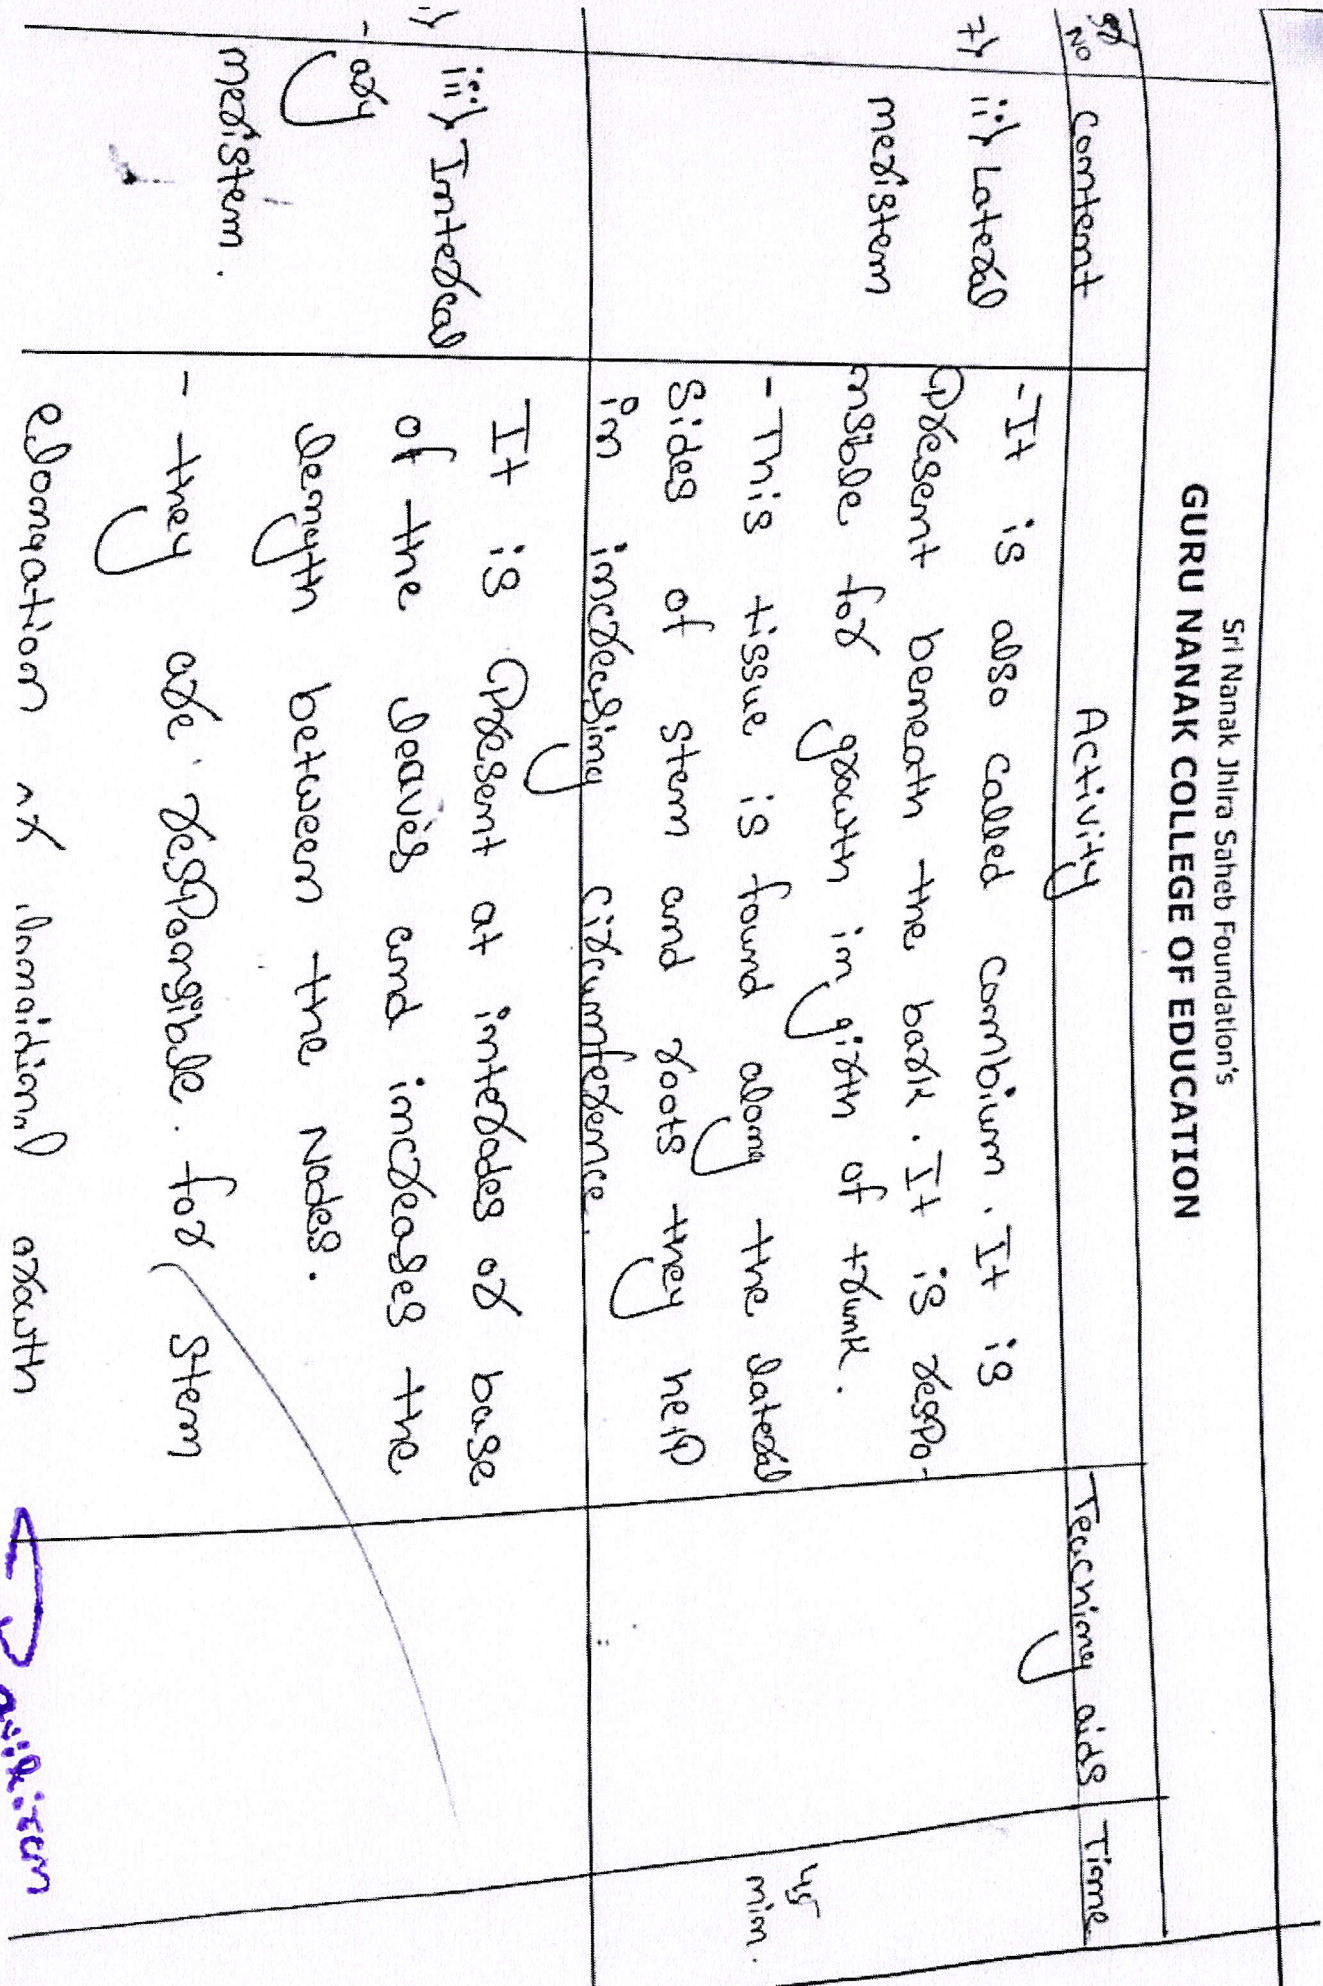 Sri Nanak Jhira Saheb Foundation's
GURU NANAK COLLEGE OF EDUCATION
NO Comtemt Activity Teaching aids Time
7} ii} Lateral
meristem
-It is also called combium. It is
Present beneath the bark. It is respo-
nsible for growth in girth of trunk.
-This tissue is found along the lateral
sides of stem and roots they help
in increasing circumference.
45
min.
iii} Intercal
-ary
meristem.
It is Present at interodes or base
of the leaves and increases the
length between the Nodes.
- they are resPonsible for stem
elongation longitudinal growth